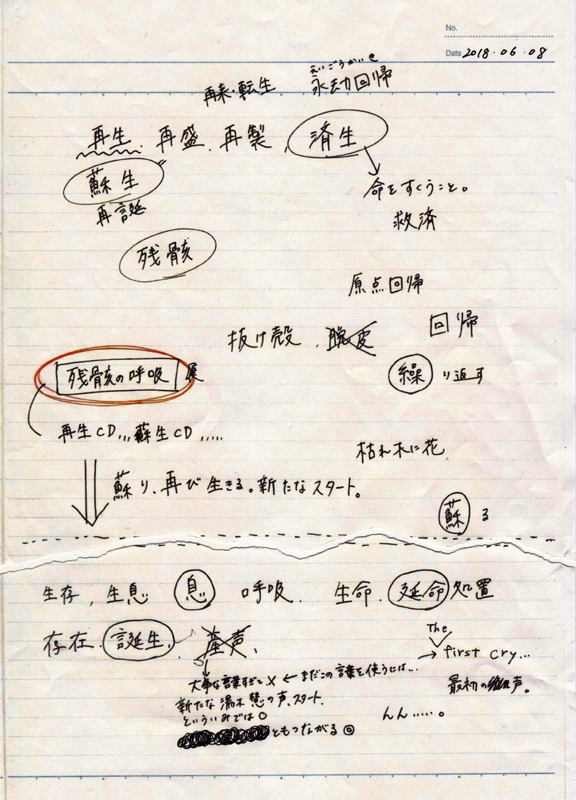 No.
Date 2018.06.08
えいごうかいき
再来・転生 永劫回帰
再生、再盛、再製、済生
蘇生
再誕
命をすくうこと。
救済
残骸
原点回帰
抜け殻、脱皮
回帰
残骸の呼吸 展
繰り返す
再生CD,,,蘇生CD,,,,,
枯れ木に花
蘇り、再び生きる。新たなスタート。
蘇る
生存、生息 息 呼吸、生命、延命処置
存在、誕生、産声、
The
→ first cry...
大事な言葉すぎて× ← まだこの言葉を使うには...
最初の声。
新たな湯木慧の声、スタート
といういみでは○
んん.....。
ともつながる◎